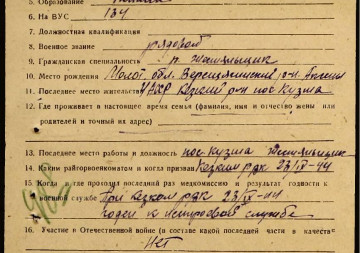 5. Образование
6. На ВУС 134
7. Должностная квалификация
8. Военное звание рядовой
9. Гражданская специальность
10. Место рождения Молот. обл. Верещагинский р-н
11. Последнее место жительства УАССР Кезский р-н пос Кузьма
12. Где проживает в настоящее время семья (фамилия, имя и отчество жены или
родителей и точный их адрес)
13. Последнее место работы и должность пос-Кузьма
14. Каким райгорвоенкоматом и когда призван Кезским РВК 23/IX-44
15. Когда и где проходил последний раз медкомиссию и результат годности к
военной службе При Кезском РВК 23/IX-44
годен к строевой службе
16. Участие в Отечественной войне (в составе какой последней части в качестве
Нет